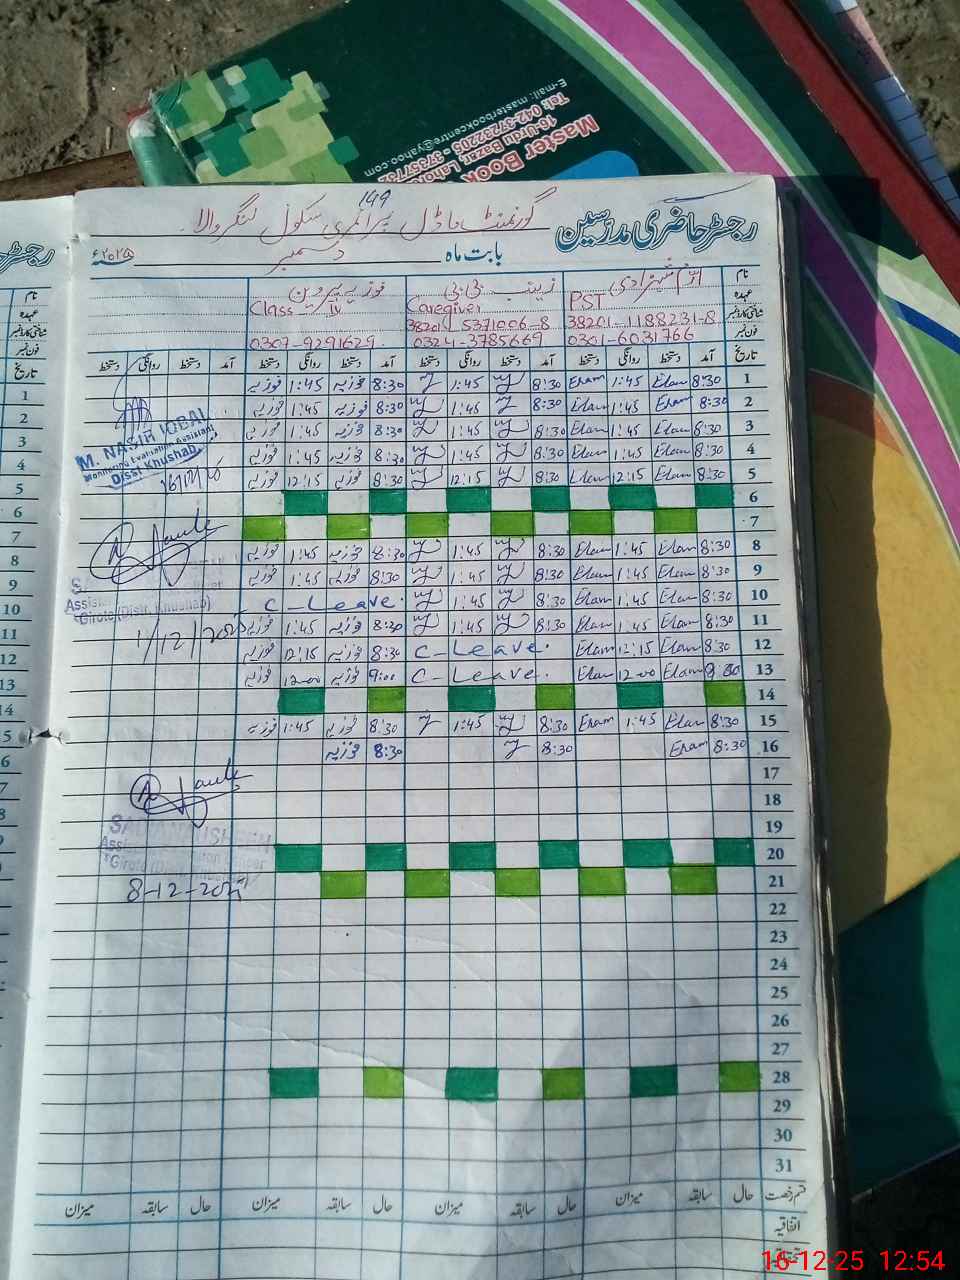 Master Book
16-Urdu Bazar, Lahore
Tel: 042-3723205 - 37357732
E-mail: masterbookcentre@yahoo.com
149
گورنمنٹ ماڈل پرائمری سکول لنگر والا
رجسٹر حاضری مدرسین
بابت ماہ دسمبر ۲۰۲۵ء
نام ارم شہزادی زینب بی بی فوزیہ پروین
عہدہ PST Caregiver Class IV
شناختی کارڈ نمبر 38201-1188231-8 38201-5371006-8
فون نمبر 0301-6031766 0324-3785669 0307-9291629
تاریخ آمد دستخط روانگی دستخط آمد دستخط روانگی دستخط آمد دستخط روانگی دستخط آمد دستخط روانگی دستخط
1 8:30 Eram 1:45 Eram 8:30 1:45 8:30 فوزیہ 1:45 فوزیہ
2 8:30 Eram 1:45 Eram 8:30 1:45 8:30 فوزیہ 1:45 فوزیہ
3 8:30 Eram 1:45 Eram 8:30 1:45 8:30 فوزیہ 1:45 فوزیہ
4 8:30 Eram 1:45 Eram 8:30 1:45 8:30 فوزیہ 1:45 فوزیہ
5 8:30 Eram 12:15 Eram 8:30 12:15 8:30 فوزیہ 12:15 فوزیہ
6
7
8 8:30 Eram 1:45 Eram 8:30 1:45 8:30 فوزیہ 1:45 فوزیہ
9 8:30 Eram 1:45 Eram 8:30 1:45 8:30 فوزیہ 1:45 فوزیہ
10 8:30 Eram 1:45 Eram 8:30 1:45 C-Leave.
11 8:30 Eram 1:45 Eram 8:30 1:45 8:30 فوزیہ 1:45 فوزیہ
12 8:30 Eram 12:15 Eram C-Leave. 8:30 فوزیہ 12:15 فوزیہ
13 Eram 12:00 Eram C-Leave. 9:00 فوزیہ 12:00 فوزیہ
14
15 8:30 Eram 1:45 Eram 8:30 1:45 8:30 فوزیہ 1:45 فوزیہ
16 8:30 Eram 8:30 8:30 فوزیہ
17
18
19
20
21
22
23
24
25
26
27
28
29
30
31
قسم رخصت حال سابقہ میزان حال سابقہ میزان حال سابقہ میزان
اتفاقیہ
M. NASIR IQBAL
Monitoring Evaluation Assistant
Distt Khushab
Girote (Distt. Khushab)
1/12/2025
SADIA NAUSHEEN
8-12-2025
16-12-25 12:54